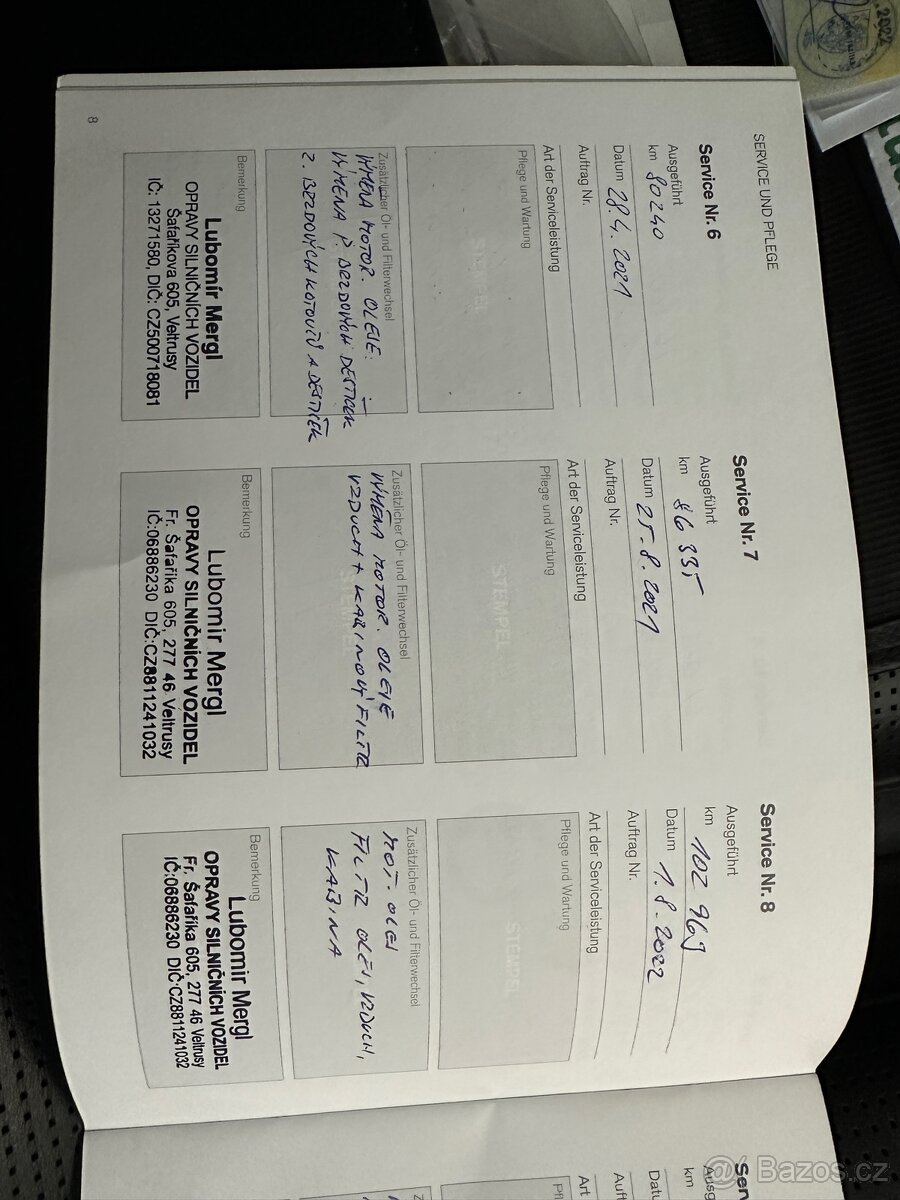 SERVICE UND PFLEGE
Service Nr. 6
Ausgeführt
km 80240
Datum 28.4.2021
Auftrag Nr.
Art der Serviceleistung
Pflege und Wartung
STEMPEL
Zusätzlicher Öl- und Filterwechsel
VÝMĚNA MOTOR. OLEJE.
VÝMĚNA P. BRZDOVÝCH DESTIČEK
Z. BRZDOVÝCH KOTOUČŮ A DESTIČEK
Bemerkung
Lubomír Mergl
OPRAVY SILNIČNÍCH VOZIDEL
Šafaříkova 605, Veltrusy
IČ: 13271580, DIČ: CZ500718081
Service Nr. 7
Ausgeführt
km 86 335
Datum 25.8.2021
Auftrag Nr.
Art der Serviceleistung
Pflege und Wartung
STEMPEL
Zusätzlicher Öl- und Filterwechsel
VÝMĚNA MOTOR. OLEJE
VZDUCH + KABINOVÝ FILTR
Bemerkung
Lubomir Mergl
OPRAVY SILNIČNÍCH VOZIDEL
Fr. Šafaříka 605, 277 46 Veltrusy
IČ:06886230 DIČ:CZ8811241032
Service Nr. 8
Ausgeführt
km 102 969
Datum 1.8.2022
Auftrag Nr.
Art der Serviceleistung
Pflege und Wartung
STEMPEL
Zusätzlicher Öl- und Filterwechsel
MOT. OLEJ
FILTR OLEJ, VZDUCH,
KABINA
Bemerkung
Lubomir Mergl
OPRAVY SILNIČNÍCH VOZIDEL
Fr. Šafaříka 605, 277 46 Veltrusy
IČ:06886230 DIČ:CZ8811241032
8
Ausg
km
Art
Bazos.cz